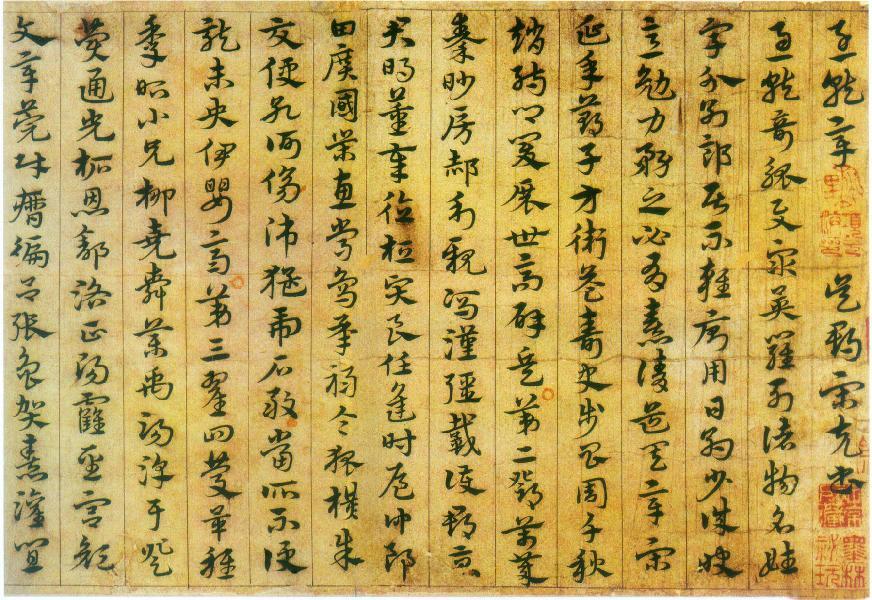 急就章 吳郡宋克書
急就奇觚與衆異羅列諸物名姓
字分別部居不雜廁用日約少誠快
意勉力務之必有憙請道其章宋
延年鄭子方衛益壽史步昌周千秋
趙孺卿爰展世高辟兵第二鄧萬歲
秦眇房郝利親馮漢彊戴護郡景
君明董奉德桓賢良任逢時侯仲郎
田廣國榮惠常烏承祿令狐橫朱
交便孔何傷師猛虎石敢當所不侵
龍未央伊嬰齊第三翟回慶畢稚
季昭小兄柳堯舜藥禹湯淳于登
費通光柘恩舒路正陽霍聖宮顏
文章莞財歷徧呂張魯賀憙灌宜